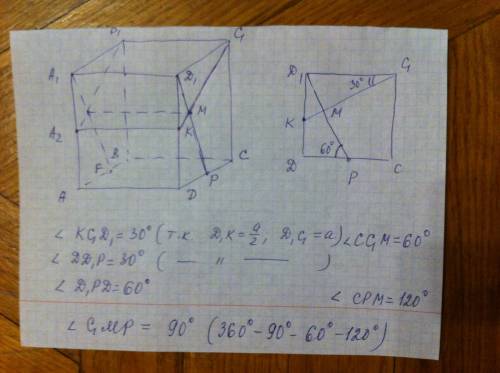 B₁ C₁
A₁ D₁
A₂ K M
F B C
A D P
D₁ 30° C₁
K M
60°
D P C
∠ KC₁D₁ = 30° (т.к D₁K = a/2; D₁C₁ = a) ∠CC₁M = 60°
∠ DD₁P = 30° ( — " — )
∠ D₁PD = 60° ∠ CPM = 120°
∠ C₁MP = 90° (360° - 90° - 60° - 120°)